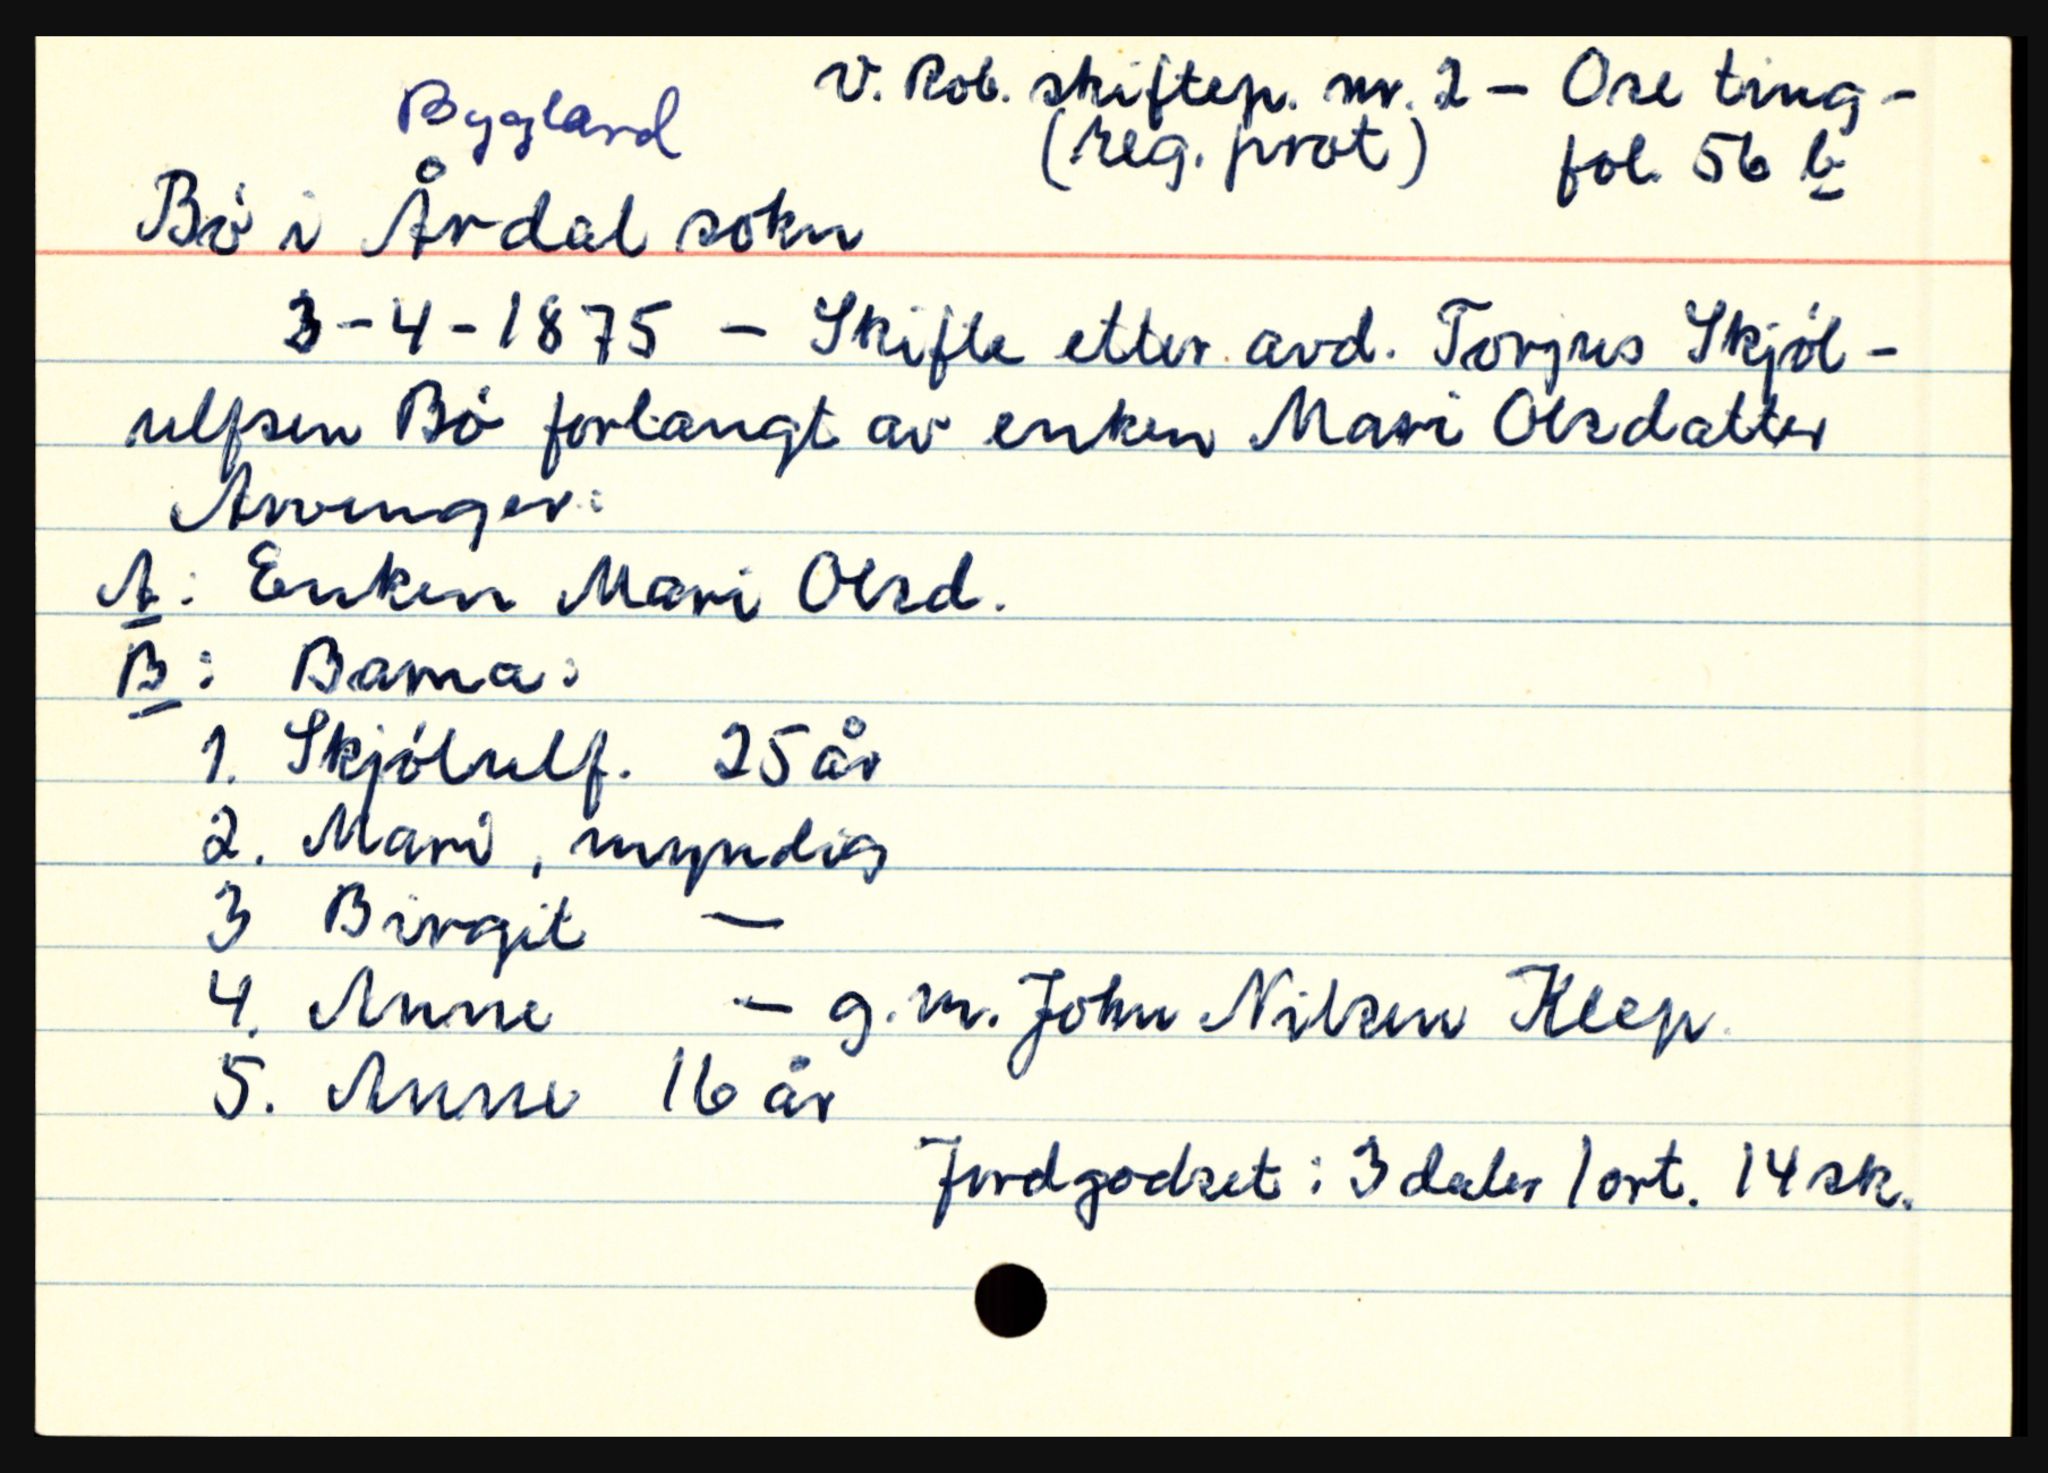 Bygland
V. Rob. skiftep. nr. 2 - Ose ting-
(reg. prot) fol. 56 b
Bö i Årdal sokn
3-4-1875 - Skifte etter avd. Torjus Skjöl-
ulfsen Bö forlangt av enken Mari Olsdatter
Arvinger:
A: Enken Mari Olsd.
B: Barna:
1. Skjölulf. 25 år
2. Mari, myndig
3 Birgit -
4. Anne - g.m. John Nilsen Kleep.
5. Anne 16 år
Jordgodset: 3 daler 1 ort. 14 sk.